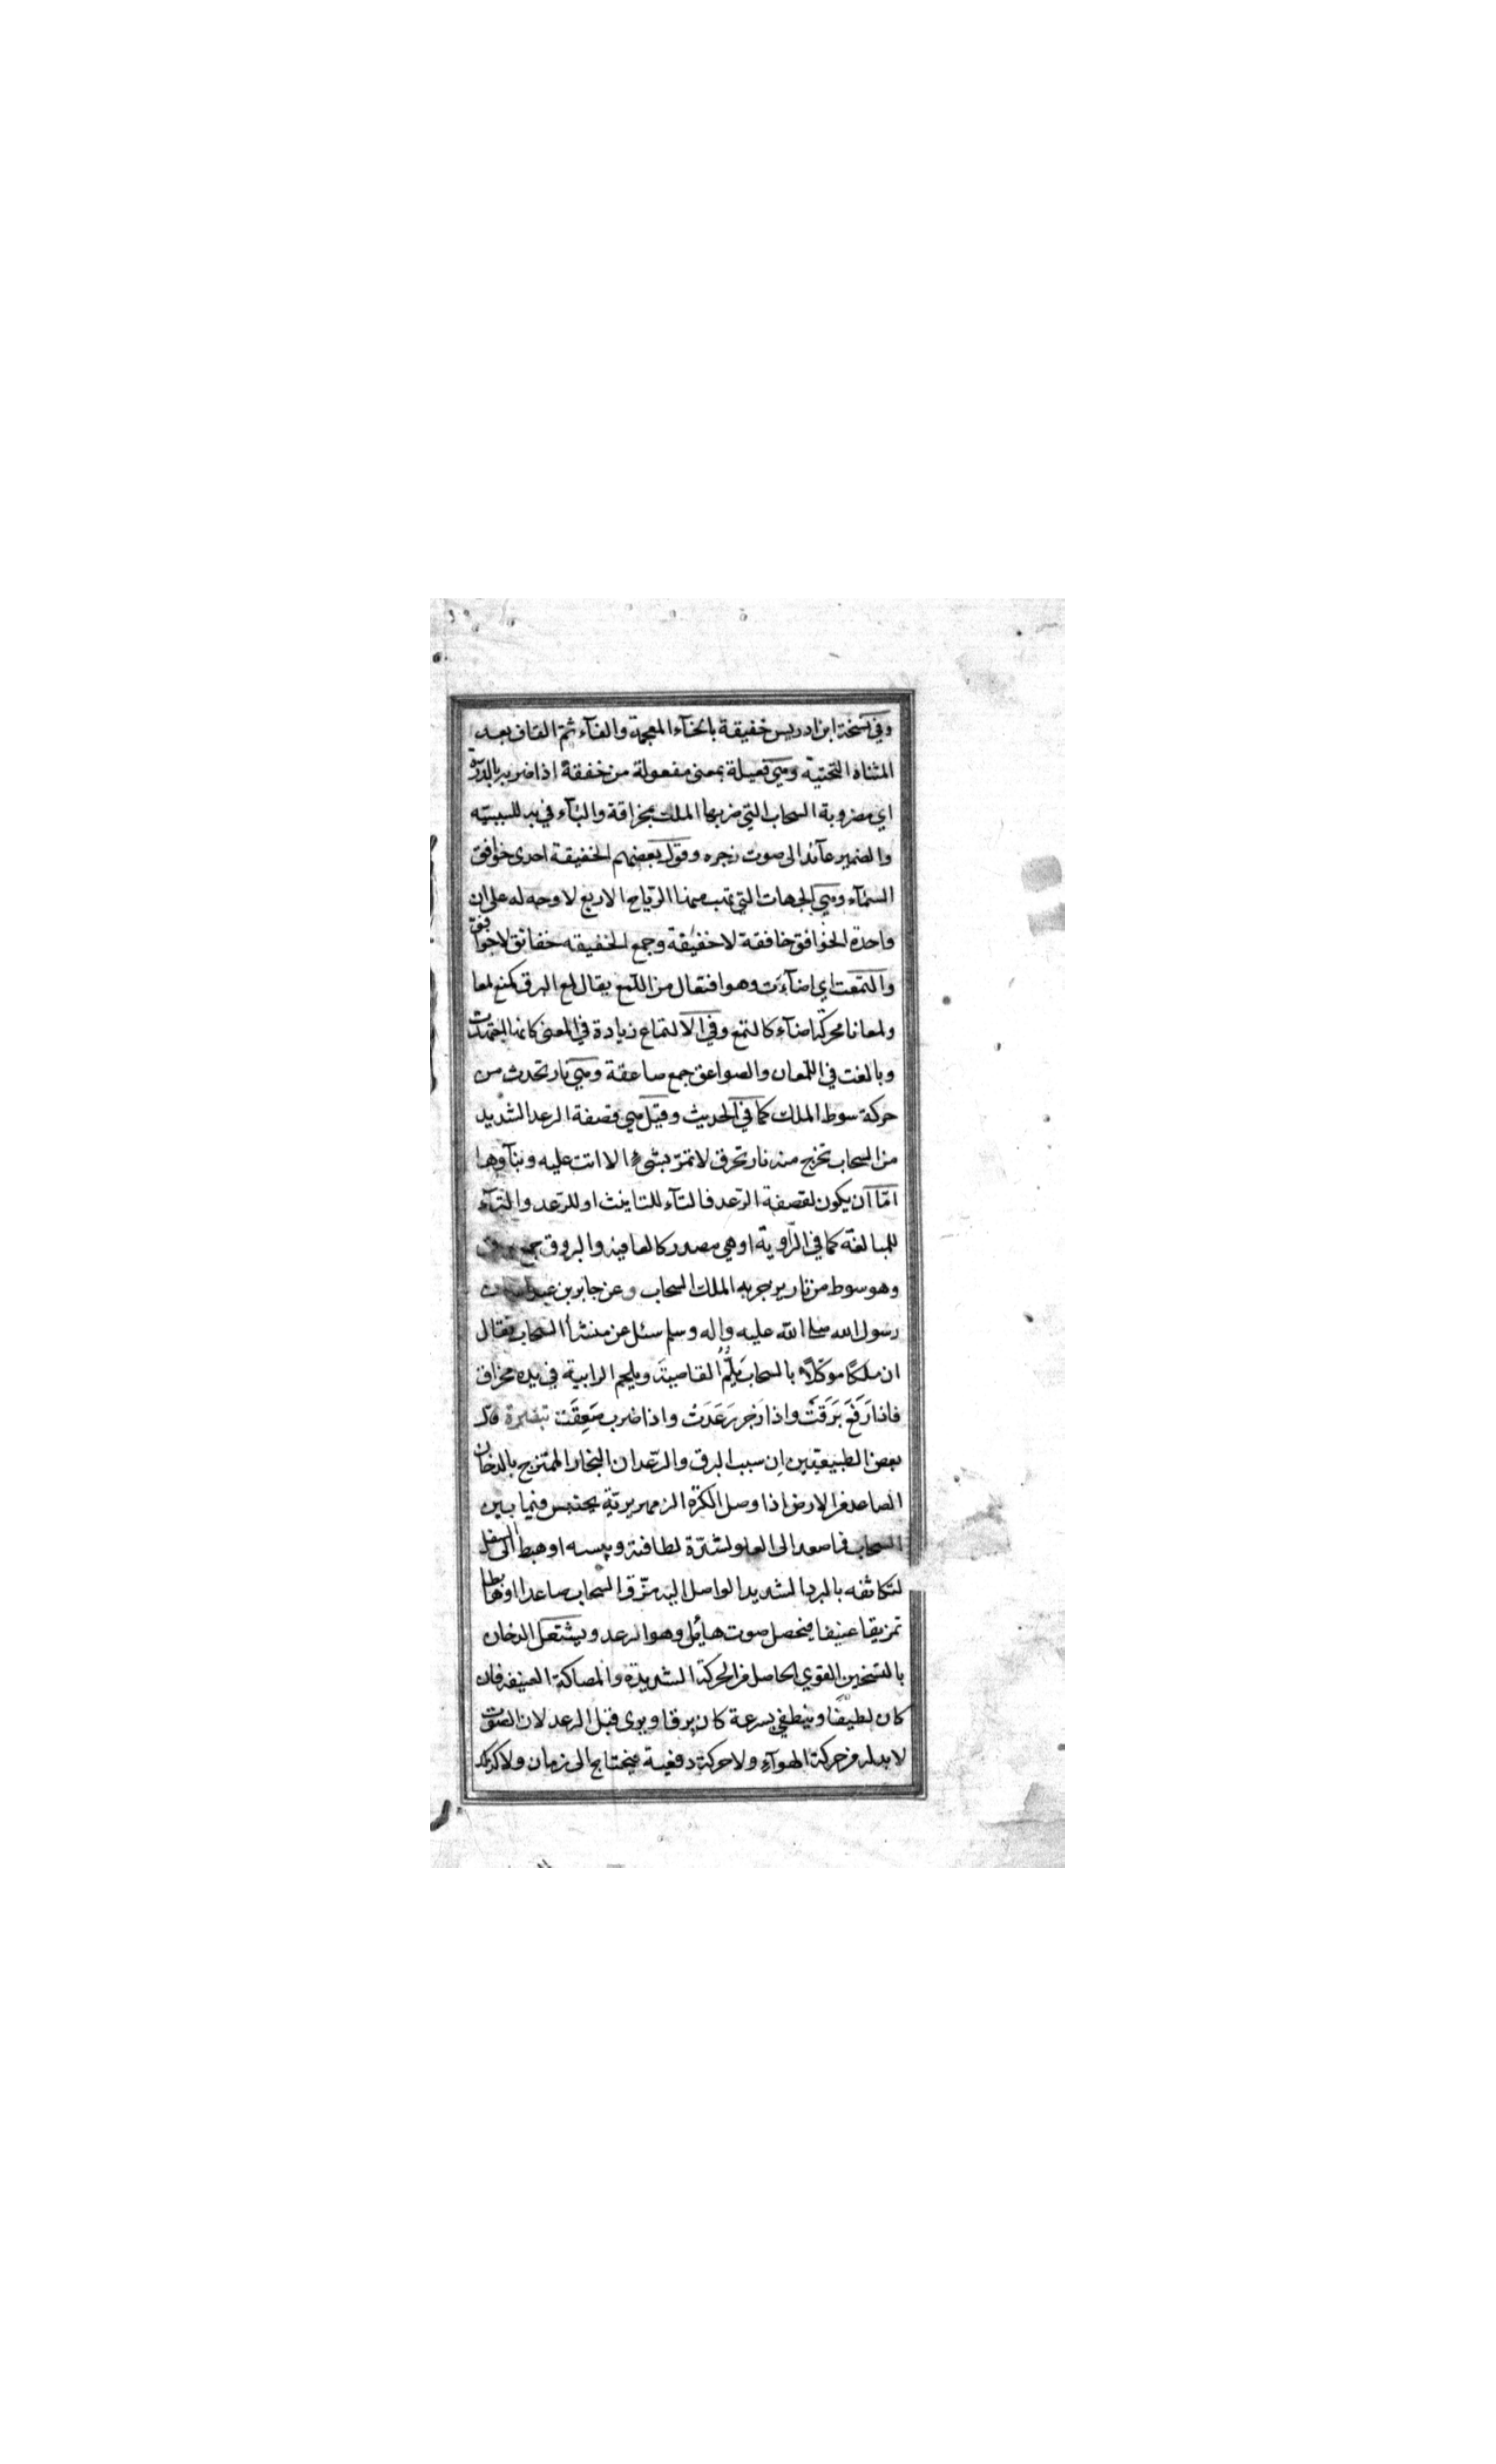 وفي نسخة ابن ادريس خفيقة بالخآء المعجمة والفآء ثم القاف بعد
المثناة التحتية وهي فعيلة بمعنى مفعولة من خفقة اذا ضربه بالدرة
اي مضروبة السحاب التي ضربها الملك بمخراقة والبآء في به للسببيّه
والضمير عآئد الى صوت زجره وقول بعضهم الخفيقة احدى خوافق
السمآء وهي الجهات التي تهب منها الرّياح الاربع لا وجه له على ان
واحدة الخوافق خافقة لا خفيقة وجمع الخفيقه خفائق لا خوافق
والتمعت اي اضآءت وهو افتعال من اللمع يقال لمع البرق كمنع لمعا
ولمعانا محركة اضآء كالتمع وفي الالتماع زيادة في المعنى كانها اجتهدت
وبالغت في اللمعان والصواعق جمع صاعقة وهي نار تحدث من
حركة سوط الملك كما في الحديث وقيل هي قصفة الرعد الشديد
من السحاب تخرج منه نار تحرق لا تمرّ بشئ الا اتت عليه وبنآوها
امّا ان يكون لقصفة الرّعد فالتآء للتانيث او للرّعد والتآء
للمبالغة كما في الرّاوية او هي مصدر كالعافية والبروق جمع
وهو سوط من نار يزجر به الملك السحاب وعن جابر بن
رسول الله صلى الله عليه واله وسلم سئل عن منشأ السحاب فقال
ان ملكًا موكّلاً بالسحاب يلمّ القاصيَة ويلحم الرابية في يده مخراق
فاذا رَفَعَ بَرَقَتْ واذا زجر رَعَدَتْ واذا ضرب صَعِقَت تبصرة قال
بعض الطبيعيّين ان سبب البرق والرّعد ان البخار الممتزج بالدخان
الصاعد من الارض اذا وصل الكرة الزمهريريّة يحتبس فيما بين
السحاب فما صعد الى العلو لشدّة لطافته ويبسه او هبط الى السفل
لتكاثفه بالبرد الشديد الواصل اليه مزّق السحاب صاعدا او هابطا
تمزيقا عنيفا فيحصل صوت هائل وهو الرعد ويشتعل الدخان
بالتسخين القوي الحاصل من الحركة الشديدة والمصاكة العنيفه فان
كان لطيفا وينطفي بسرعة كان برقا ويرى قبل الرعد لان الصوت
لا بد له من حركة الهوآء ولا حركة دفعية فيحتاج الى زمان ولا كذلك